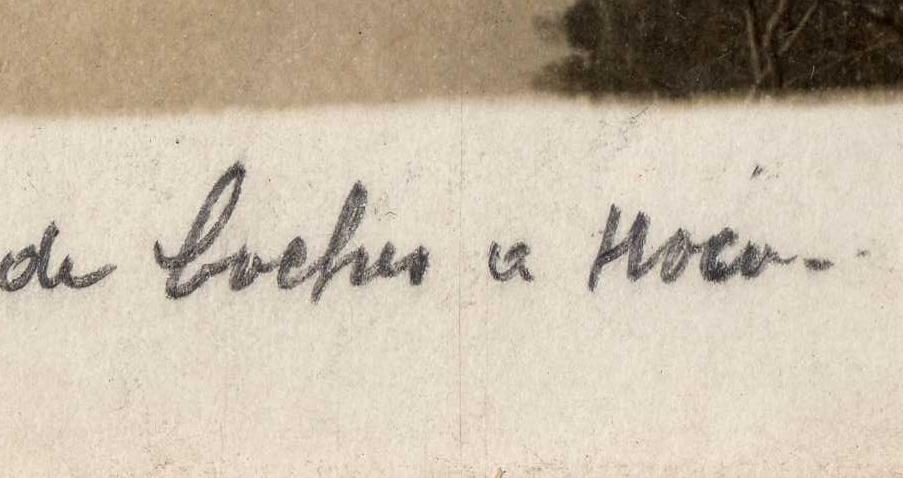 de Coches a Hoco-